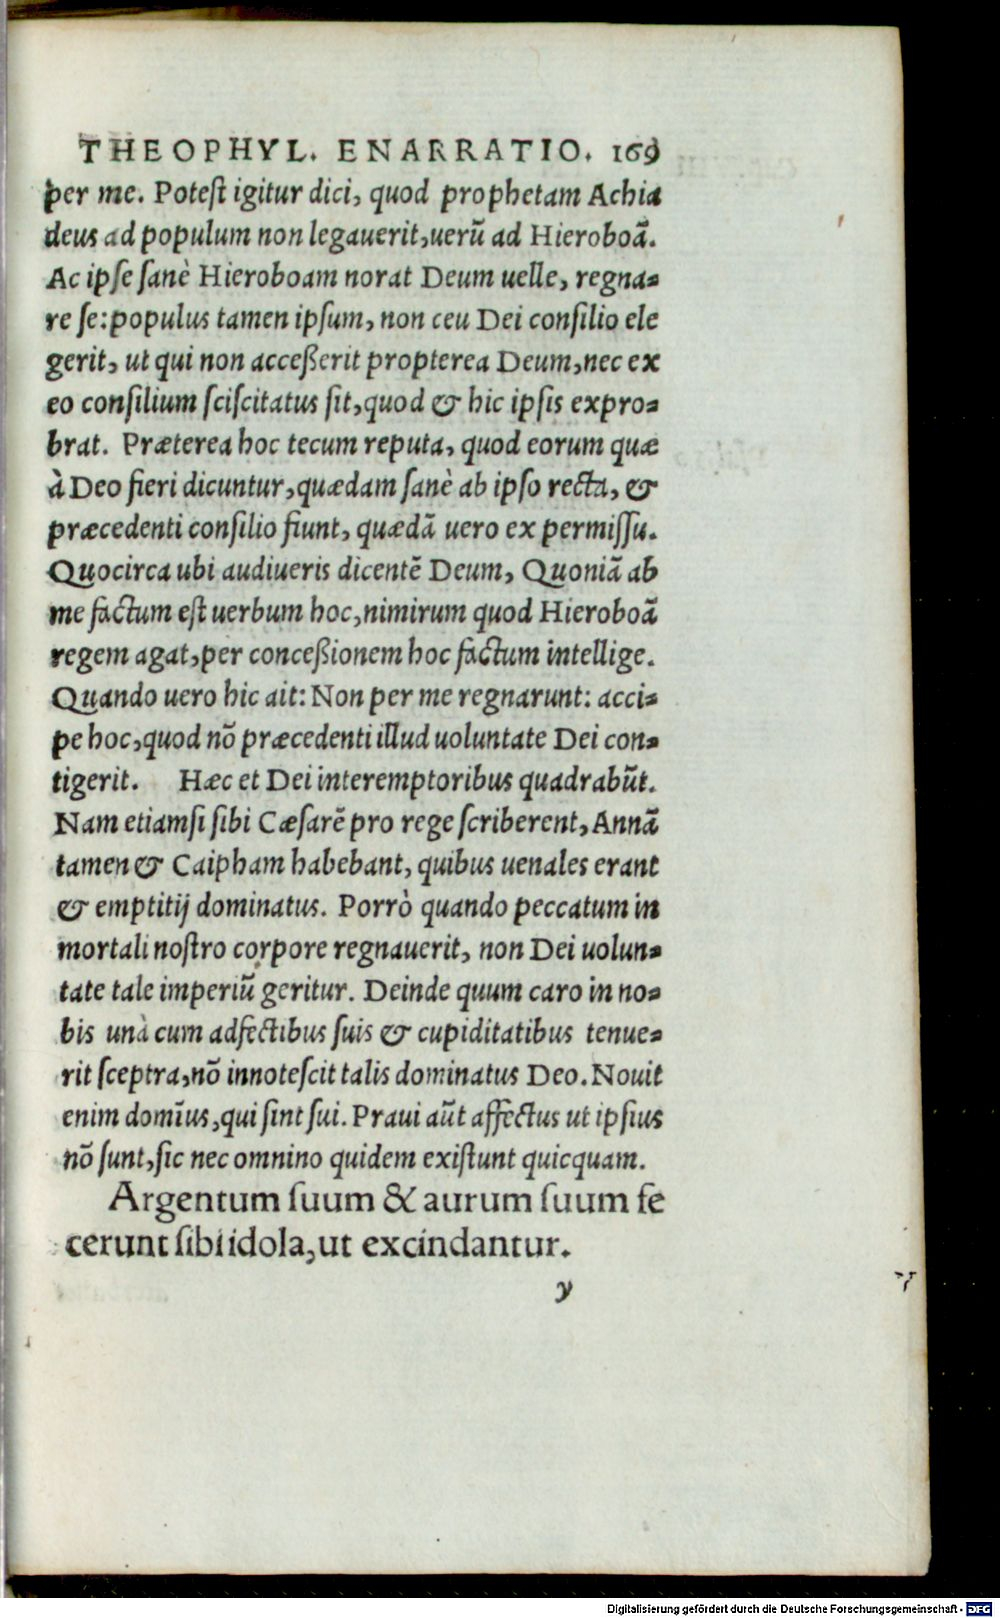 THEOPHYL. ENARRATIO. 169
per me. Potest igitur dici, quod prophetam Achia
deus ad populum non legauerit, uerũ ad Hieroboã.
Ac ipse sanè Hieroboam norat Deum uelle, regna-
re se: populus tamen ipsum, non ceu Dei consilio ele
gerit, ut qui non acceßerit propterea Deum, nec ex
eo consilium sciscitatus sit, quod & hic ipsis expro-
brat. Præterea hoc tecum reputa, quod eorum quæ
à Deo fieri dicuntur, quædam sanè ab ipso recta, &
præcedenti consilio fiunt, quædã uero ex permissu.
Quocirca ubi audiueris dicentẽ Deum, Quoniã ab
me factum est uerbum hoc, nimirum quod Hieroboã
regem agat, per conceßionem hoc factum intellige.
Quando uero hic ait: Non per me regnarunt: acci-
pe hoc, quod nõ præcedenti illud uoluntate Dei con-
tigerit. Hæc et Dei interemptoribus quadrabũt.
Nam etiamsi sibi Cæsarẽ pro rege scriberent, Annã
tamen & Caipham habebant, quibus uenales erant
& emptitij dominatus. Porrò quando peccatum in
mortali nostro corpore regnauerit, non Dei uolun-
tate tale imperiũ geritur. Deinde quum caro in no-
bis unà cum adfectibus suis & cupiditatibus tenue-
rit sceptra, nõ innotescit talis dominatus Deo. Nouit
enim domĩus, qui sint sui. Praui aũt affectus ut ipsius
nõ sunt, sic nec omnino quidem existunt quicquam.
Argentum suum & aurum suum fe
cerunt sibi idola, ut excindantur.
y
Digitalisierung gefördert durch die Deutsche Forschungsgemeinschaft - DFG